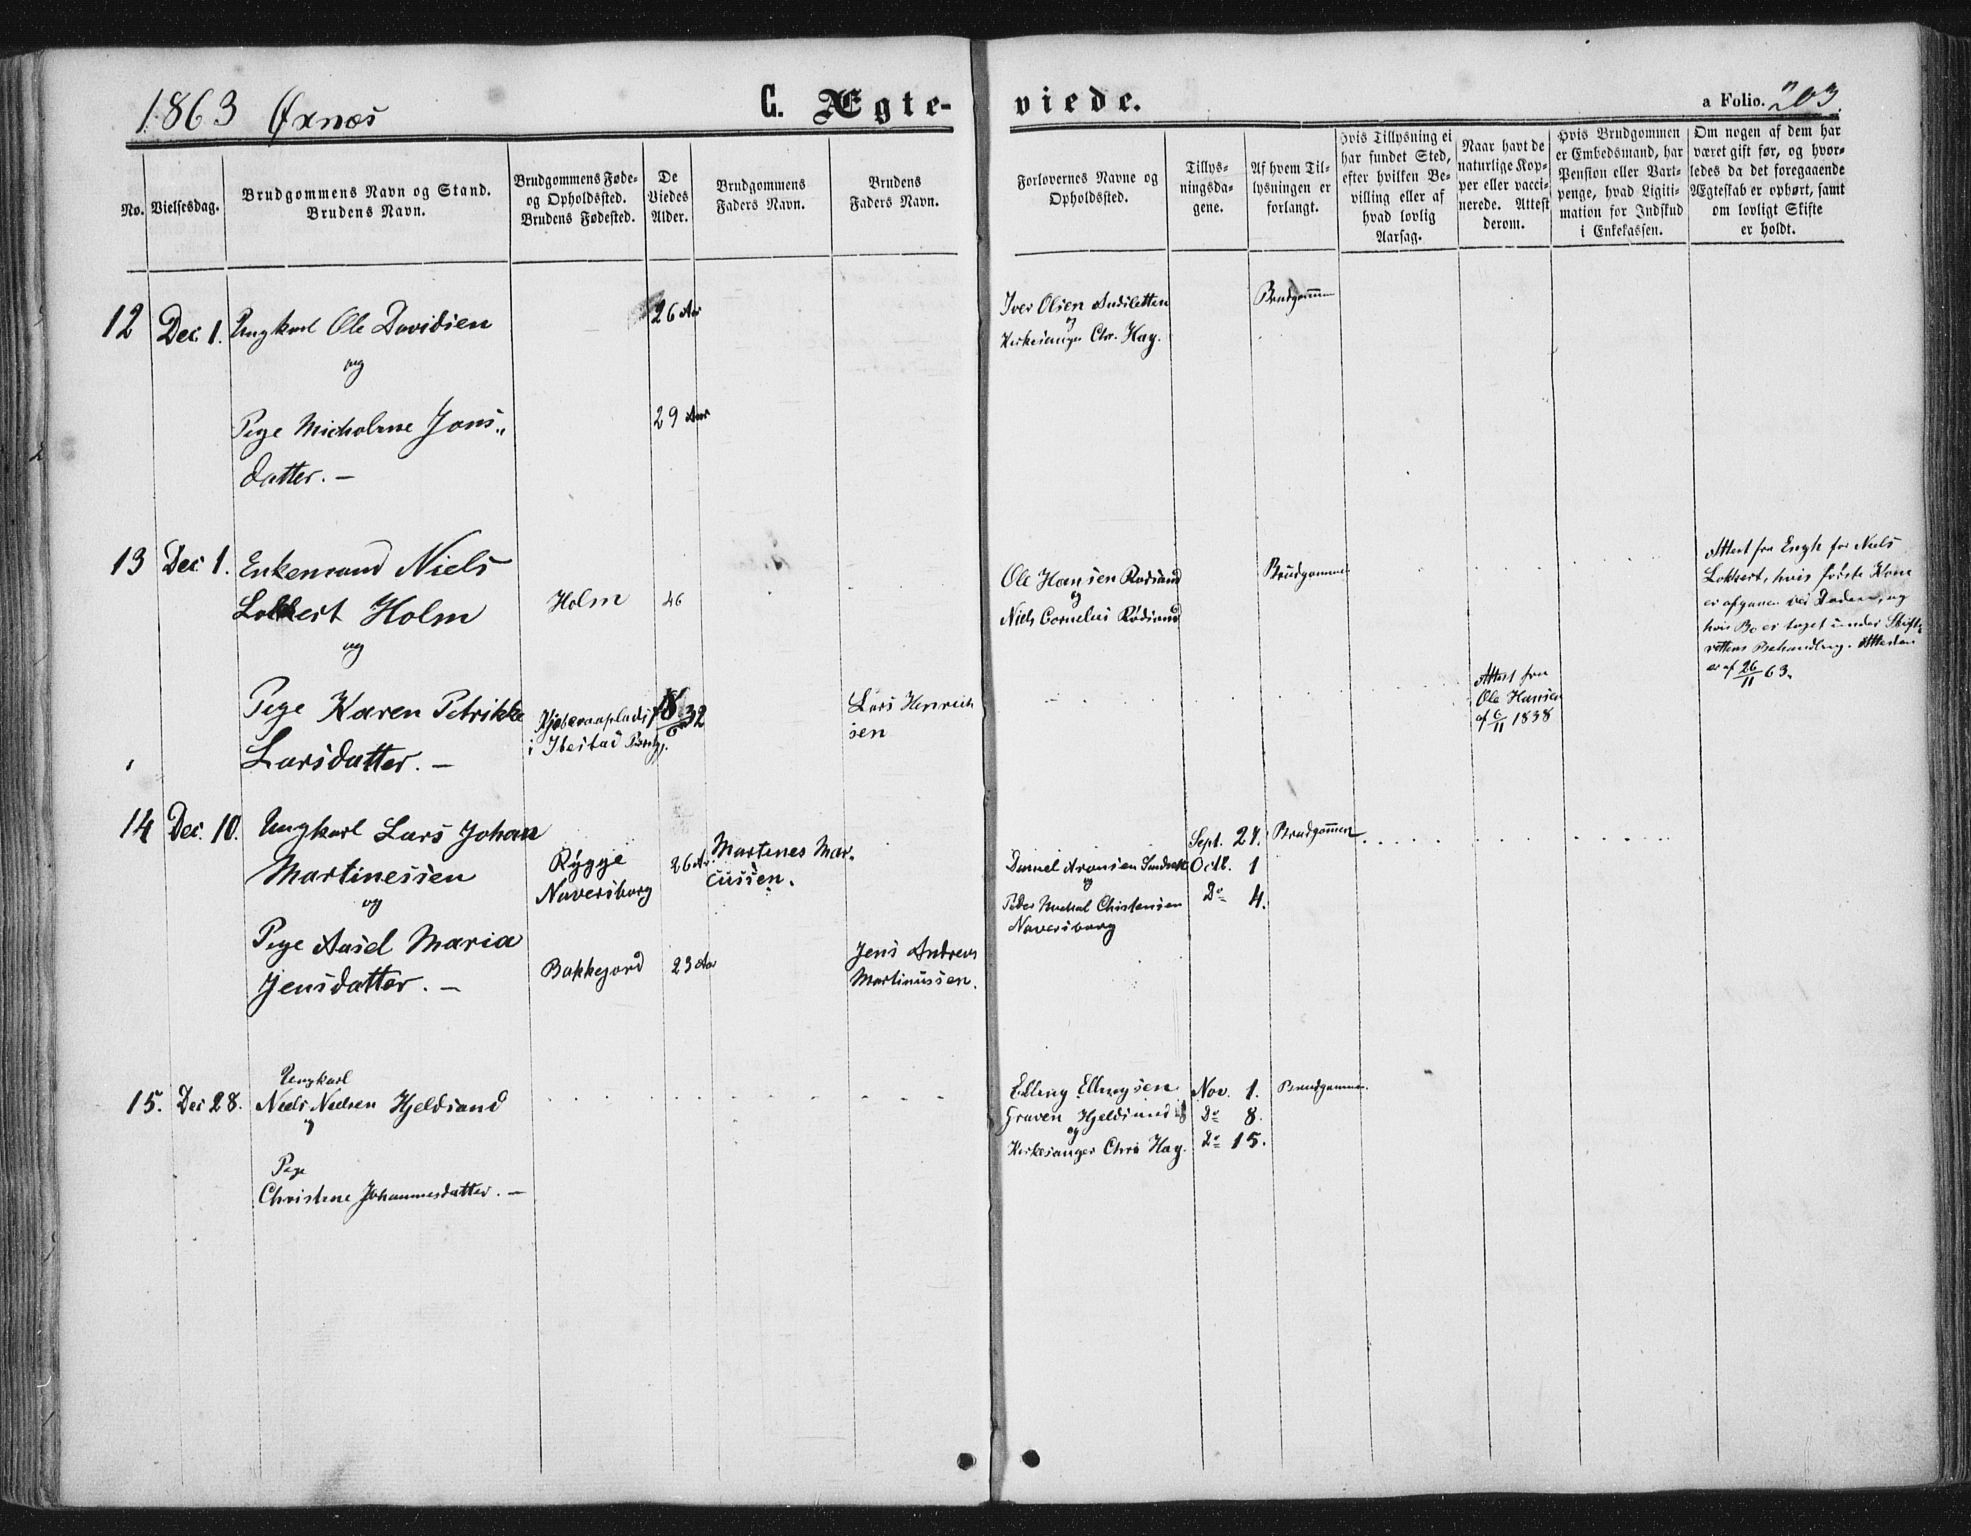 1863 Øxnæs
C. Ægte-
viede.
a Folio. 203.
No.
Vielsesdag.
Brudgommens Navn og Stand.
Brudens Navn.
Brudgommens Føde-
og Opholdssted.
Brudens Fødested.
De
Viedes
Alder.
Brudgommens
Faders Navn.
Brudens
Faders Navn.
Forlovernes Navne og
Opholdssted.
Tillys-
ningsda-
gene.
Af hvem Til-
lysningen er
forlangt.
Hvis Tillysning ei
har fundet Sted,
efter hvilken Be-
villing eller af
hvad lovlig
Aarsag.
Naar havt de
naturlige Kop-
per eller vacci-
nerede. Attest
derom.
Hvis Brudgommen
er Embedsmand, har
Pension eller Vart-
penge, hvad Ligiti-
mation for Indskud
i Enkekassen.
Om nogen af dem har
været gift før, og hvor-
ledes da det foregaaende
Ægteskab er ophørt, samt
om lovligt Skifte
er holdt.
12 Dec. 1. Ungkarl Ole Davidsen
og
Pige Micholine Jons-
datter. —
26 Aar
29 Aar
Iver Olsen
og
Kirkesanger Chr. Hag.
Brudgommen
13 Dec 1. Enkemand Niels
Lokkert Holm
og
Pige Karen Petrikke
Larsdatter. —
Holm
i Ibestad
46
18 6 32
Lars Henrich
sen
Ole Hansen Rødsand
og
Niels Cornelius Rødsand
Brudgommen
Attest fra
Ole Hansen
af 6/11 1838
Attest fra Engh for Niels
Lokkert, hvis første Kone
er afgaaen ved Døden, og
hvis Bo er taget under Skift-
rettens Behandling. Attesten
er af 26/11 63.
14 Dec. 10. Ungkarl Lars Johan
Martinessen
og
Pige Aasel Maria
Jensdatter. —
Rygge
Naversborg
Bakkejord
26 Ar.
23 Aar
Martines Mar-
cussen.
Jens Andreas
Martinussen.
Daniel Aronsen
og
Peder Michal Christensen
Naversborg
Sept. 27.
Octb. 1
Do 4.
Brudgommen
15. Dec 28.
Ungkarl
Niels Nielsen Hjeldsand
og
Pige
Christine Johannesdatter. —
Elling Ellingsen
Hjeldsand
og
Kirkesanger Chr. Hag.
Nov. 1.
Do 8.
Do 15.
Brudgommen